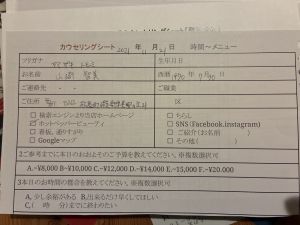 カウンセリングシート 2021年 11月 21日 時間〜メニュー
フリガナ ヤマザキ トモミ 生年月日
お名前 山崎 智美 西暦 年 7月 日
ご連絡先 - - ご職業
ご住所
□ 検索エンジンより当店ホームページ □ ちらし
☑ ホットペッパービューティ □ SNS(Facebook.instagram)
□ 看板、通りすがり □ ご紹介(お名前 )
□ Googleマップ □ その他( )
2ご参考までに本日のおおよそのご予算を教えてください。※複数選択可
A.~¥8,000 B~¥10,000 C.~¥12,000 D.~¥14,000 E.~15,000 F.~¥20.000
3本日のお時間の都合を教えてください。※複数選択可
A, 少し余裕がある B, 出来るだけ早くしてほしい
C,( 時 分)までに終わりたい